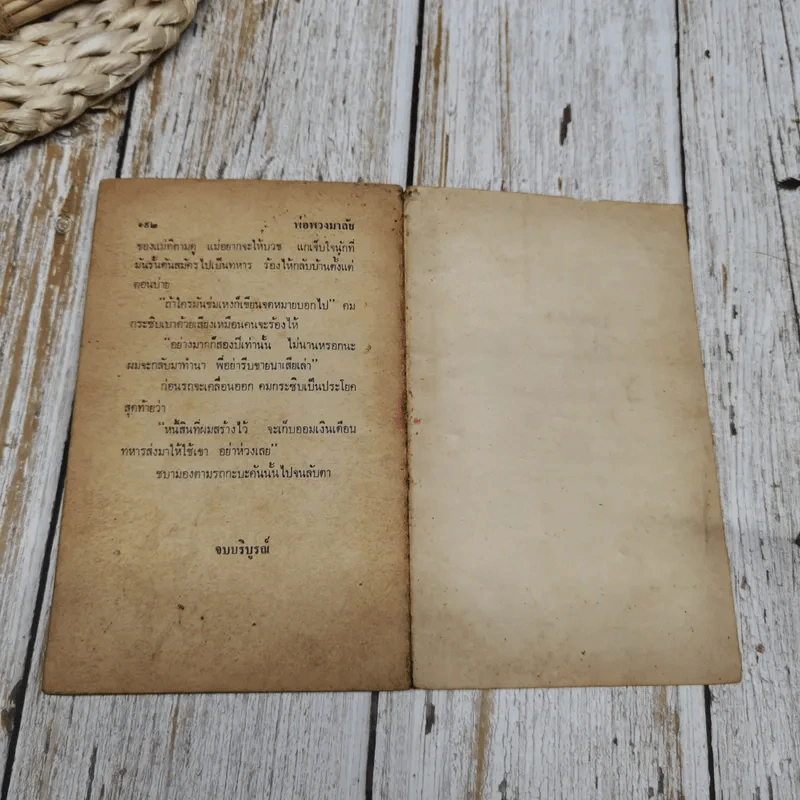 ๑๕๒ พ่อพวงมาลัย
ของแม่ติดามดู แม่อยากจะให้บวช แกเจ็บใจนักที่
มันรั้นดันสมัครไปเป็นทหาร ร้องไห้กลับบ้านตั้งแต่
ตอนบ่าย
"ถ้าใครมันข่มเหงก็เขียนจดหมายบอกไป" คม
กระซิบเบาด้วยเสียงเหมือนคนจะร้องไห้
"อย่างมากก็สองปีเท่านั้น ไม่นานหรอกนะ
ผมจะกลับมาทำนา พี่อย่ารีบขายนาเสียเล่า"
ก่อนรถจะเคลื่อนออก คมกระซิบเป็นประโยค
สุดท้ายว่า
"หนี้สินที่ผมสร้างไว้ จะเก็บออมเงินเดือน
ทหารส่งมาให้ใช้เขา อย่าห่วงเลย"
ชบามองตามรถกะบะคันนั้นไปจนลับตา
จบบริบูรณ์